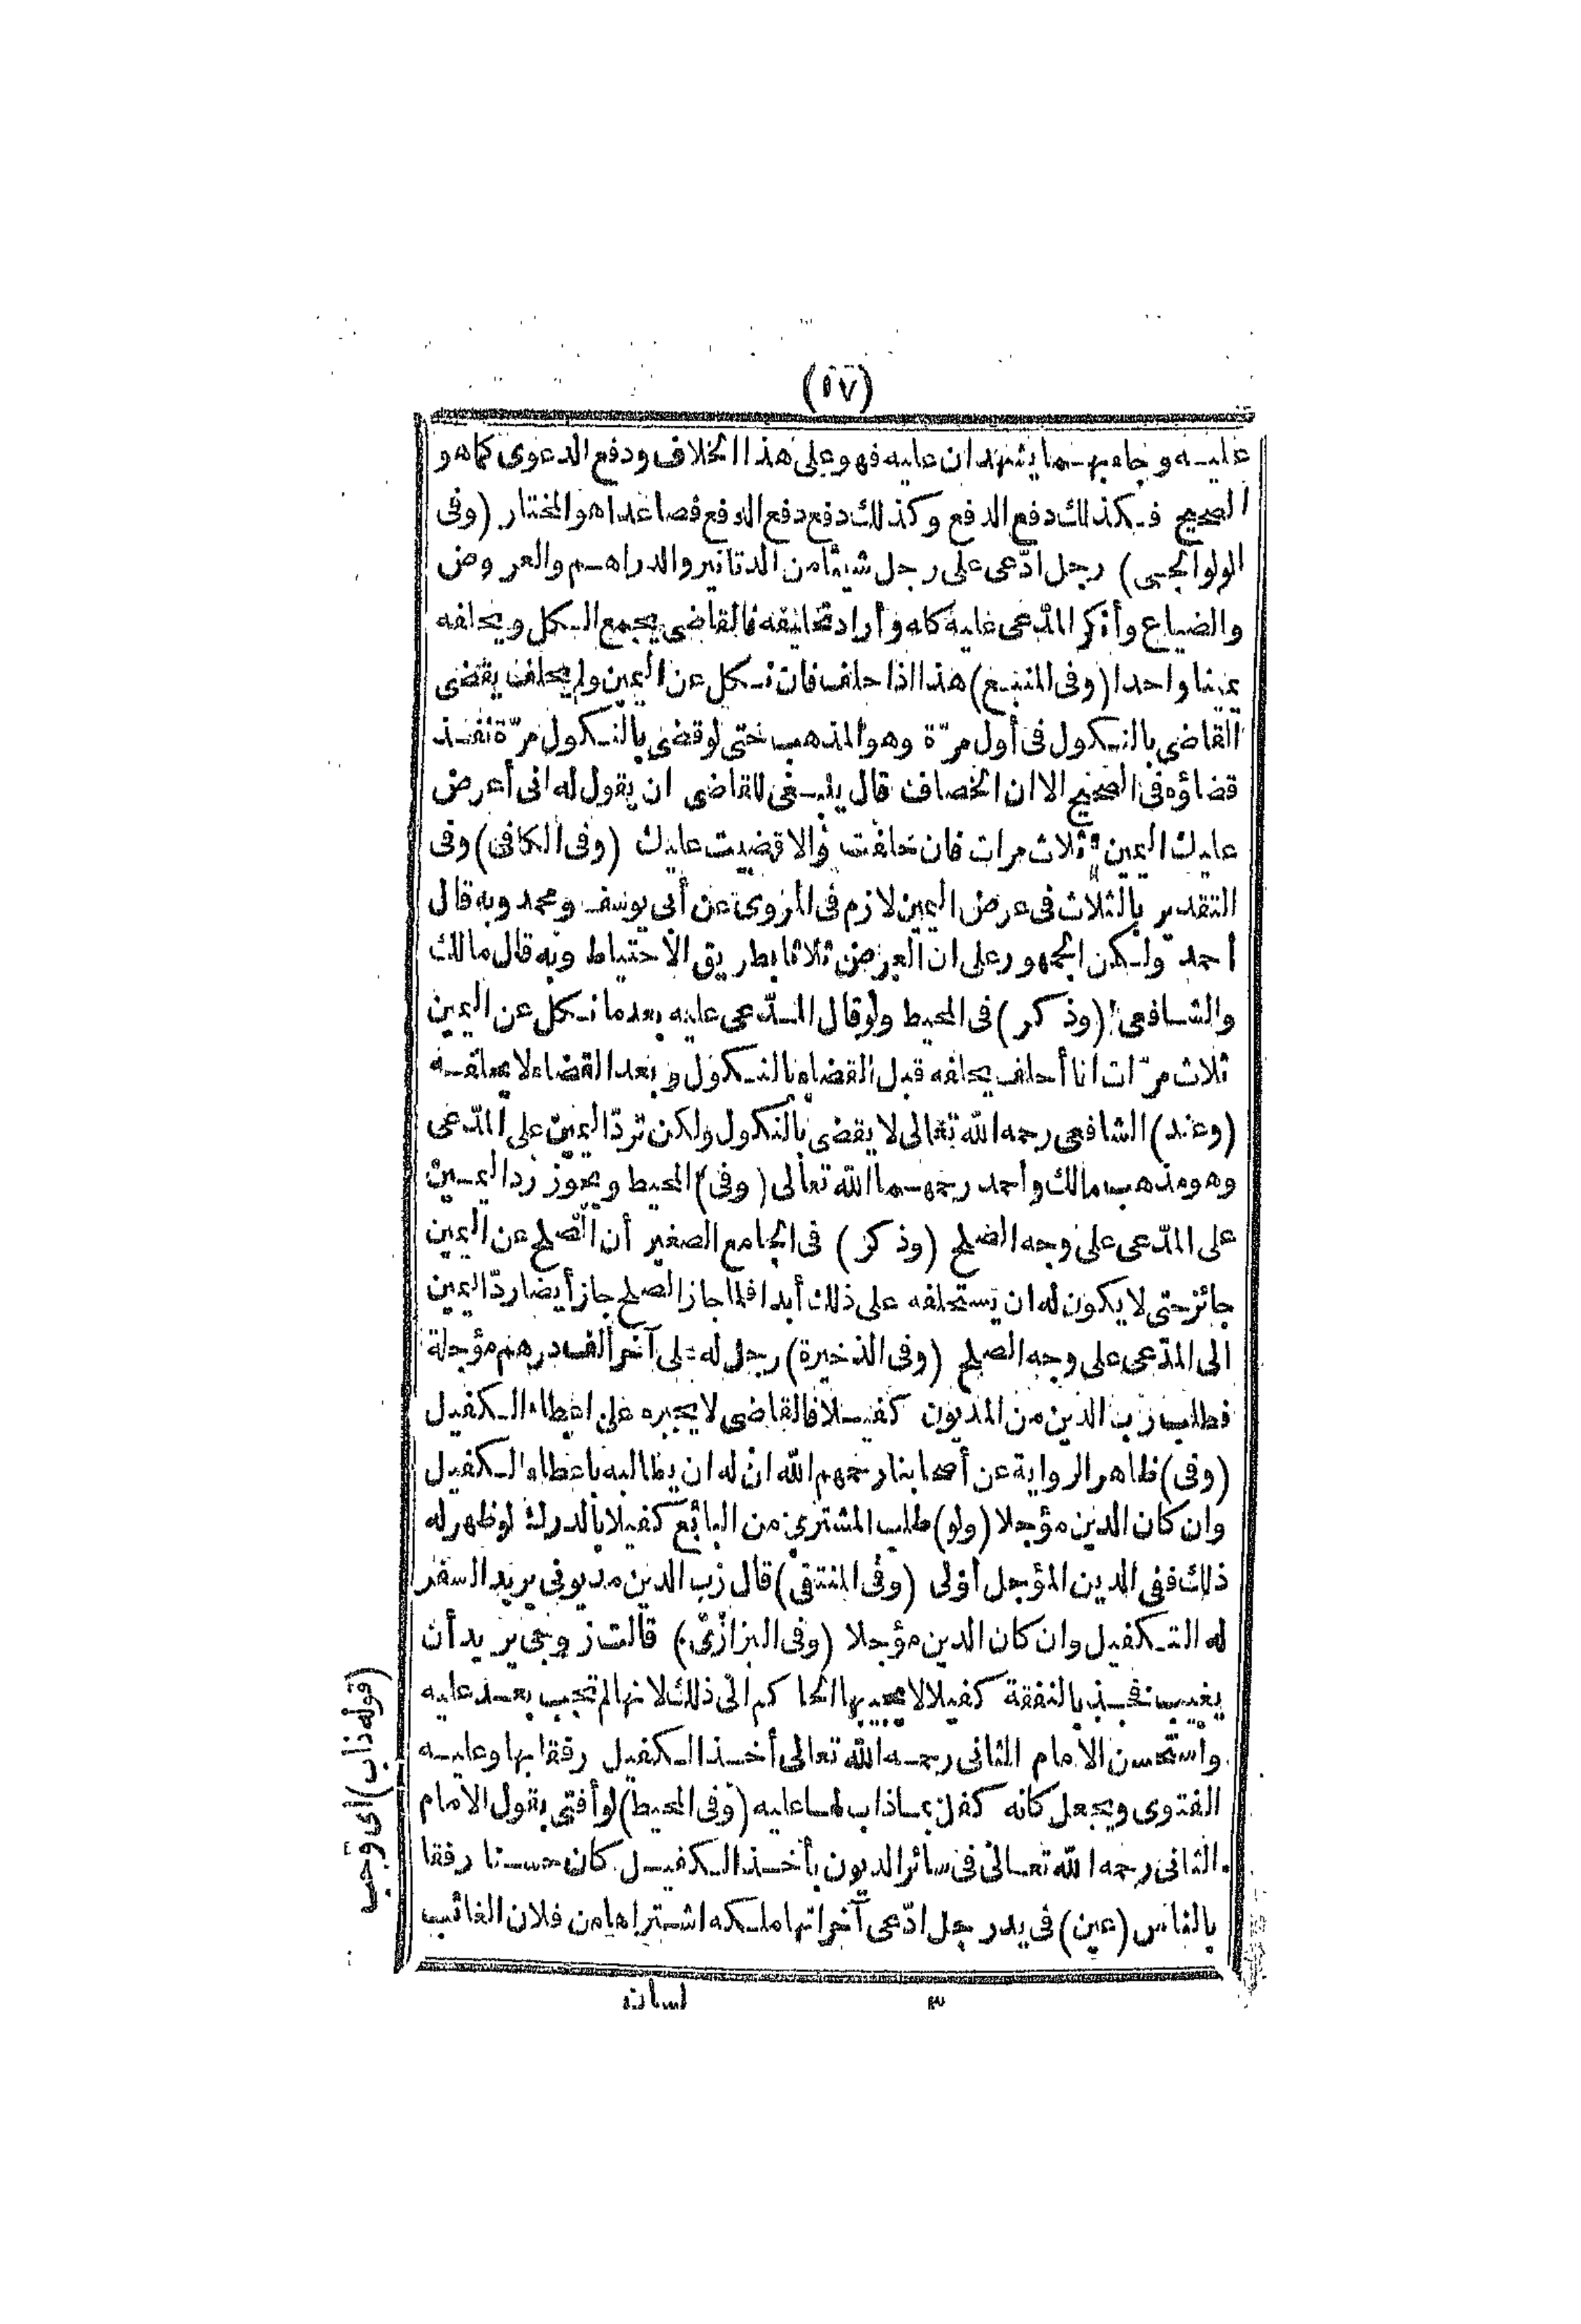 (١٧)
عليه وجاء بهما يشهدان عليه فهو على هذا الخلاف ودفع الدعوى كما هو
الصحيح فكذلك دفع الدفع وكذلك دفع دفع الدفع فصاعدا هو المختار (وفى
الولوالجى) رجل ادّعى على رجل شيئا من الدنانير والدراهم والعروض
والضياع وأنكر المدّعى عليه كله وأراد تحليفه فالقاضى يجمع الكل ويحلفه
يمينا واحدا (وفى المنبع) هذا اذا حلف فان نكل عن اليمين ولم يحلف يقضى
القاضى بالنكول فى أول مرّة وهو المذهب حتى لو قضى بالنكول مرّة نفذ
قضاؤه فى الصحيح الا ان الخصاف قال ينبغى للقاضى ان يقول له انى أعرض
عليك اليمين ثلاث مرات فان حلفت والا قضيت عليك (وفى الكافى) وفى
التقدير بالثلاث فى عرض اليمين لازم فى المروى عن أبى يوسف ومحمد وبه قال
أحمد ولكن الجمهور على ان العرض ثلاثا بطريق الاحتياط وبه قال مالك
والشافعى (وذكر) فى المحيط ولو قال المدّعى عليه بعد ما نكل عن اليمين
ثلاث مرّات انا أحلف يحلفه قبل القضاء بالنكول وبعد القضاء لا يحلفه
(وعند) الشافعى رحمه الله تعالى لا يقضى بالنكول ولكن تردّ اليمين على المدّعى
وهو مذهب مالك وأحمد رحمهما الله تعالى (وفى) المحيط ويجوز رد اليمين
على المدّعى على وجه الصلح (وذكر) فى الجامع الصغير أن الصلح عن اليمين
جائز حتى لا يكون له ان يستحلفه على ذلك أبدا فلما جاز الصلح جاز أيضا ردّ اليمين
الى المدّعى على وجه الصلح (وفى الذخيرة) رجل له على آخر ألف درهم مؤجلة
فطلب رب الدين من المديون كفيلا فالقاضى لا يجبره على اعطاء الكفيل
(وفى) ظاهر الرواية عن أصحابنا رحمهم الله ان له ان يطالبه باعطاء الكفيل
وان كان الدين مؤجلا (ولو) طلب المشترى من البائع كفيلا بالدرك لو ظهر له
ذلك ففى الدين المؤجل أولى (وفى المنتقى) قال رب الدين مديونى يريد السفر
له التكفيل وان كان الدين مؤجلا (وفى البزازى) قالت زوجى يريد أن
يغيب فخذ بالنفقة كفيلا لا يجيبها الحاكم الى ذلك لانها لم تجب بعد عليه
واستحسن الامام الثانى رحمه الله تعالى أخذ الكفيل رفقا بها وعليه
الفتوى ويجعل كانه كفل بما ذاب لها عليه (وفى المحيط) لو أفتى بقول الامام
الثانى رحمه الله تعالى فى سائر الديون بأخذ الكفيل كان حسنا رفقا
بالناس (عين) فى يد رجل ادّعى آخر انها ملكه اشتراها من فلان الغائب
(قوله ذاب) أى وجب
٣ لسان